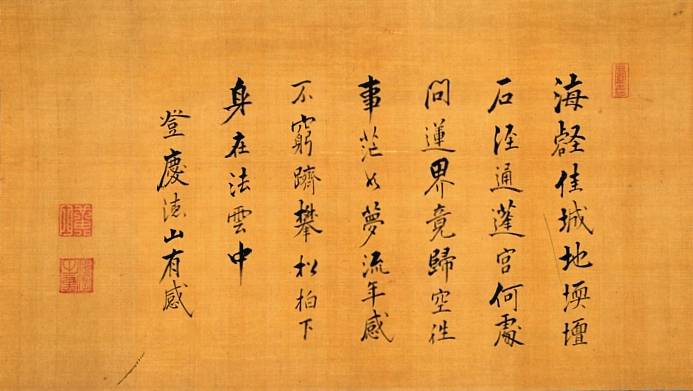 海壑佳城地堧壇
石徑通蓬宮何處
問蓮界竟歸空往
事茫如夢流年感
不窮躋攀松柏下
身在法雲中
登慶德山有感